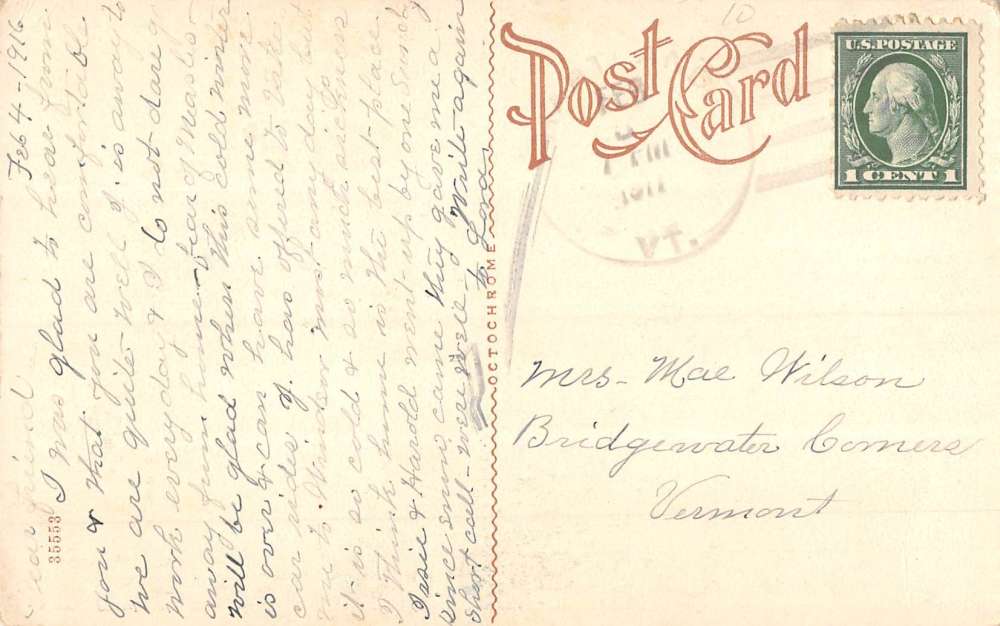 Feb 4 - 1916
Dear friend
I was glad to hear from
you & that you are comfortable.
we are quite - well J. is away to
work every day & I do not dare go
away from home - fear of
will be glad when this cold winter
is over & can have some more
car rides J. has offered to take
me to Windsor most any day but
it is so cold & so much sickness
I think home is the best place
& Harold went up by one Sunday
since snow came they gave me a
short call - were well Write again
to Lora
35553
OCTOCHROME
Post Card
10
U.S. POSTAGE
1 CENT 1
VT.
Mrs - Mae Wilson
Bridgewater Corners
Vermont